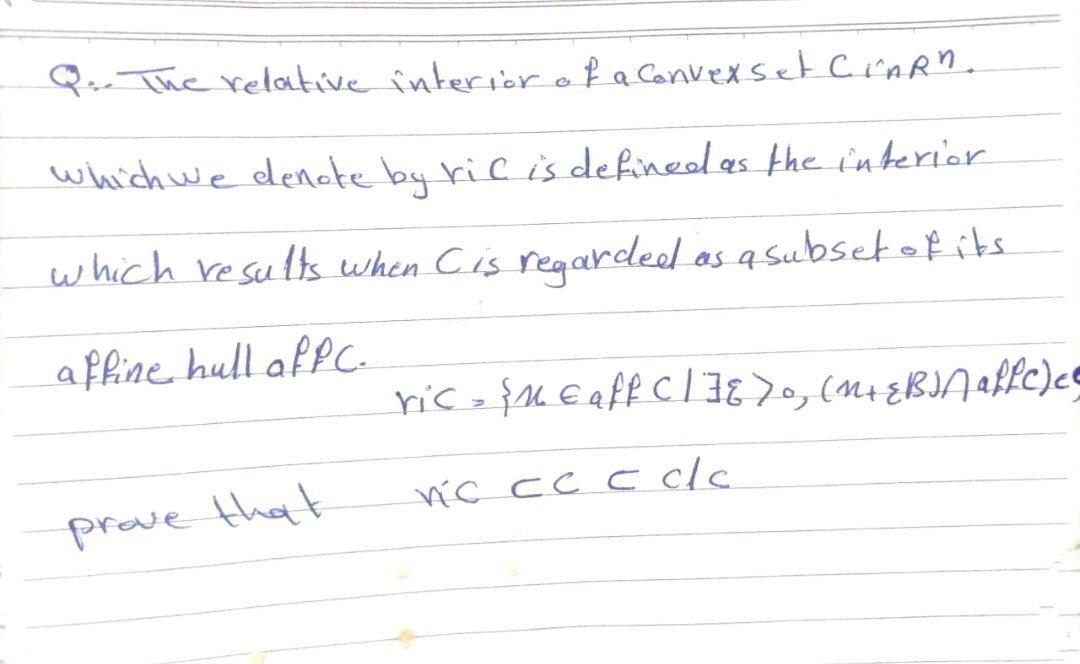 Q:- The relative interior of a Convex set C in Rⁿ.
which we denote by ri C is defined as the interior
which results when C is regarded as a subset of its
affine hull aff C.
ri C = {x ∈ aff C | ∃ε > 0, (x + εB) ∩ aff C) ⊂ C
prove that ri C ⊂ C ⊂ cl C